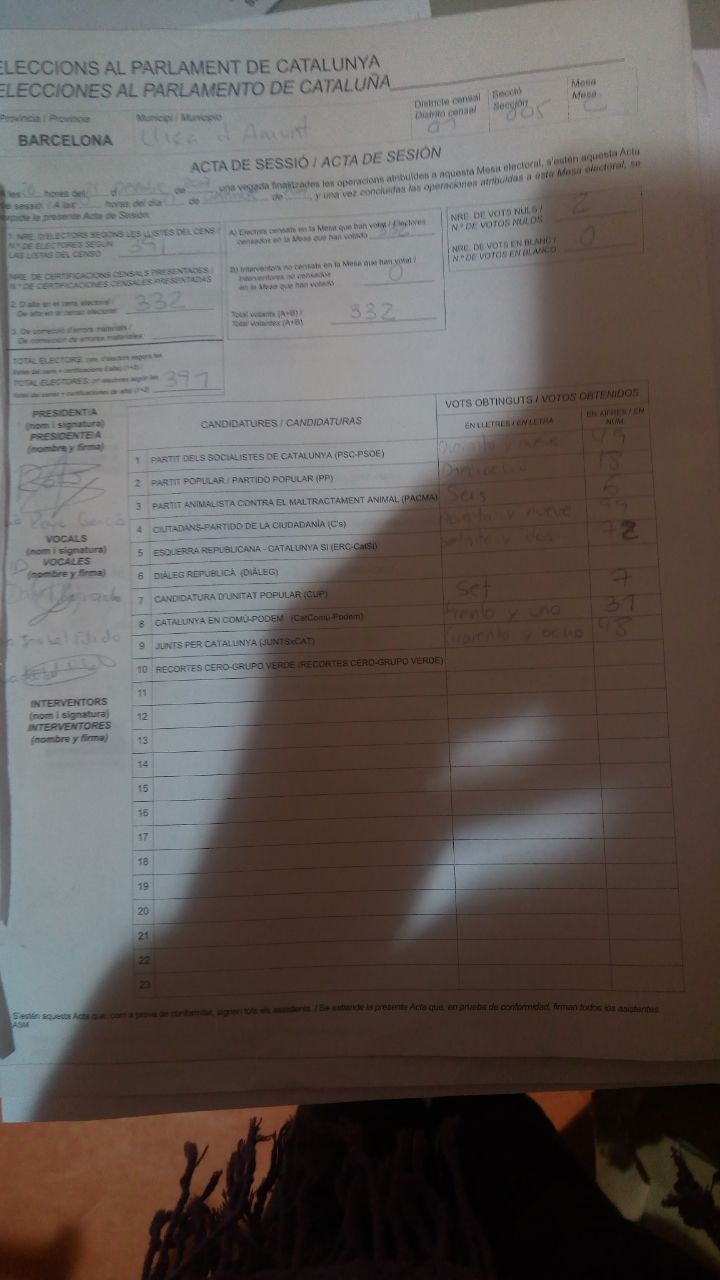 ELECCIONS AL PARLAMENT DE CATALUNYA
ELECCIONES AL PARLAMENTO DE CATALUÑA
Província / Provincia Municipi / Municipio Districte censal Secció Mesa
Distrito censal Sección Mesa
BARCELONA d'Amunt 01 005 C
ACTA DE SESSIÓ / ACTA DE SESIÓN
horas del de una vegada finalitzades les operacions atribuïdes a aquesta Mesa electoral, s'estén aquesta Acta
de sessió. / A las horas del día de de , y una vez concluidas las operaciones atribuidas a esta Mesa electoral, se
expide la presente Acta de Sesión:
1. NRE. D'ELECTORS SEGONS LES LLISTES DEL CENS /
N.º DE ELECTORES SEGÚN
LAS LISTAS DEL CENSO
NRE. DE CERTIFICACIONS CENSALS PRESENTADES /
N.º DE CERTIFICACIONES CENSALES PRESENTADAS
2. D'alta en el cens electoral /
De alta en el censo electoral: 332
3. De correcció d'errors materials /
De corrección de errores materiales:
TOTAL ELECTORS:
TOTAL ELECTORES: 397
A) Electors censats en la Mesa que han votat / Electores
censados en la Mesa que han votado 332
B) Interventors no censats en la Mesa que han votat /
Interventores no censados
en la Mesa que han votado 0
Total votants (A+B) /
Total votantes (A+B) 332
NRE. DE VOTS NULS /
N.º DE VOTOS NULOS 2
NRE. DE VOTS EN BLANC /
N.º DE VOTOS EN BLANCO 0
PRESIDENT/A
(nom i signatura)
PRESIDENTE/A
(nombre y firma)
VOCALS
(nom i signatura)
VOCALES
(nombre y firma)
INTERVENTORS
(nom i signatura)
INTERVENTORES
(nombre y firma)
CANDIDATURES / CANDIDATURAS VOTS OBTINGUTS / VOTOS OBTENIDOS
EN LLETRES / EN LETRA EN XIFRES / EN NÚM.
1 PARTIT DELS SOCIALISTES DE CATALUNYA (PSC-PSOE) y nueve 49
2 PARTIT POPULAR / PARTIDO POPULAR (PP) 18
3 PARTIT ANIMALISTA CONTRA EL MALTRACTAMENT ANIMAL (PACMA) Seis 6
4 CIUTADANS-PARTIDO DE LA CIUDADANÍA (C's) y nueve 99
5 ESQUERRA REPUBLICANA - CATALUNYA SÍ (ERC-CatSí) y dos 72
6 DIÀLEG REPUBLICÀ (DIÀLEG)
7 CANDIDATURA D'UNITAT POPULAR (CUP) Set 7
8 CATALUNYA EN COMÚ-PODEM (CatComú-Podem) trenta y uno 31
9 JUNTS PER CATALUNYA (JUNTSxCAT) y ocho 48
10 RECORTES CERO-GRUPO VERDE (RECORTES CERO-GRUPO VERDE)
11
12
13
14
15
16
17
18
19
20
21
22
23
S'estén aquesta Acta que, com a prova de conformitat, signen tots els assistents. / Se extiende la presente Acta que, en prueba de conformidad, firman todos los asistentes.
ASM